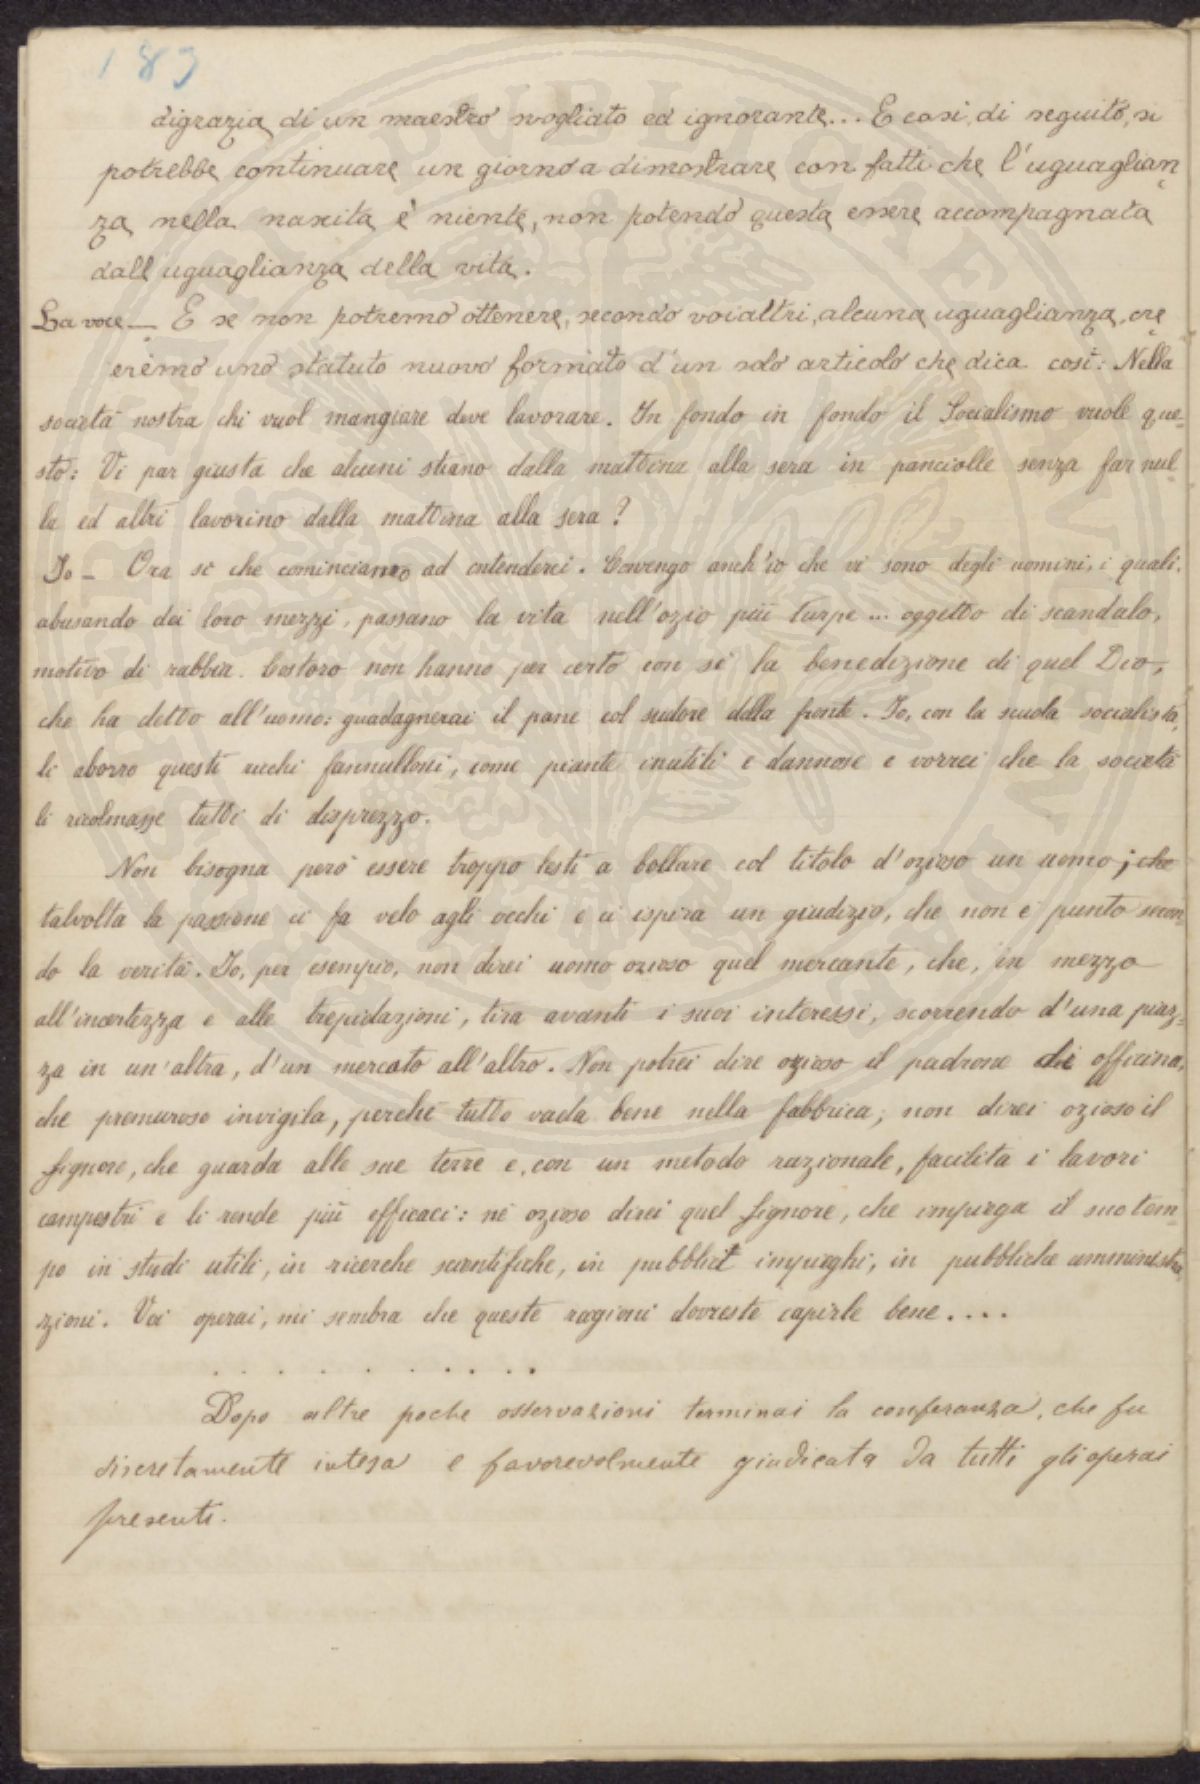 189
digrazia di un maestro svogliato ed ignorante... E così, di seguito, si
potrebbe continuare un giorno a dimostrare con fatti che l'uguaglian-
za nella nascita è niente, non potendo questa essere accompagnata
dall'uguaglianza della vita.
La voce — E se non potremo ottenere, secondo voialtri, alcuna uguaglianza, cre-
eremo uno statuto nuovo formato d'un solo articolo che dica così: Nella
società nostra chi vuol mangiare deve lavorare. In fondo in fondo il Socialismo vuole que-
sto: Vi par giusta che alcuni stiano dalla mattina alla sera in panciolle senza far nul-
la ed altri lavorino dalla mattina alla sera?
Io — Ora sì che cominciamo ad intenderci. Convengo anch'io che vi sono degli uomini, i quali,
abusando dei loro mezzi, passano la vita nell'ozio più turpe... oggetto di scandalo,
motivo di rabbia. Costoro non hanno per certo con sé la benedizione di quel Dio,
che ha detto all'uomo: guadagnerai il pane col sudore della fronte. Io, con la scuola socialista,
li aborro questi ricchi fannulloni, come piante inutili e dannose e vorrei che la società
li ricolmasse tutti di disprezzo.
Non bisogna però essere troppo lesti a bollare col titolo d'ozioso un uomo; chè
talvolta la passione ci fa velo agli occhi e ci ispira un giudizio, che non è punto secon-
do la verità. Io, per esempio, non direi uomo ozioso quel mercante, che, in mezzo
all'incertezza e alle trepidazioni, tira avanti i suoi interessi, scorrendo d'una piaz-
za in un'altra, d'un mercato all'altro. Non potrei dire ozioso il padrone di officina,
che premuroso invigila, perchè tutto vada bene nella fabbrica; non direi ozioso il
Signore, che guarda alle sue terre e, con un metodo razionale, facilita i lavori
campestri e li rende più efficaci: nè ozioso direi quel Signore, che impiega il suo tem-
po in studi utili, in ricerche scientifiche, in pubblici impieghi, in pubbliche amministra-
zioni. Voi operai, mi sembra che queste ragioni dovreste capirle bene....
. . . . . . . . . . .
Dopo altre poche osservazioni terminai la conferenza, che fu
discretamente intesa e favorevolmente giudicata da tutti gli operai
presenti.